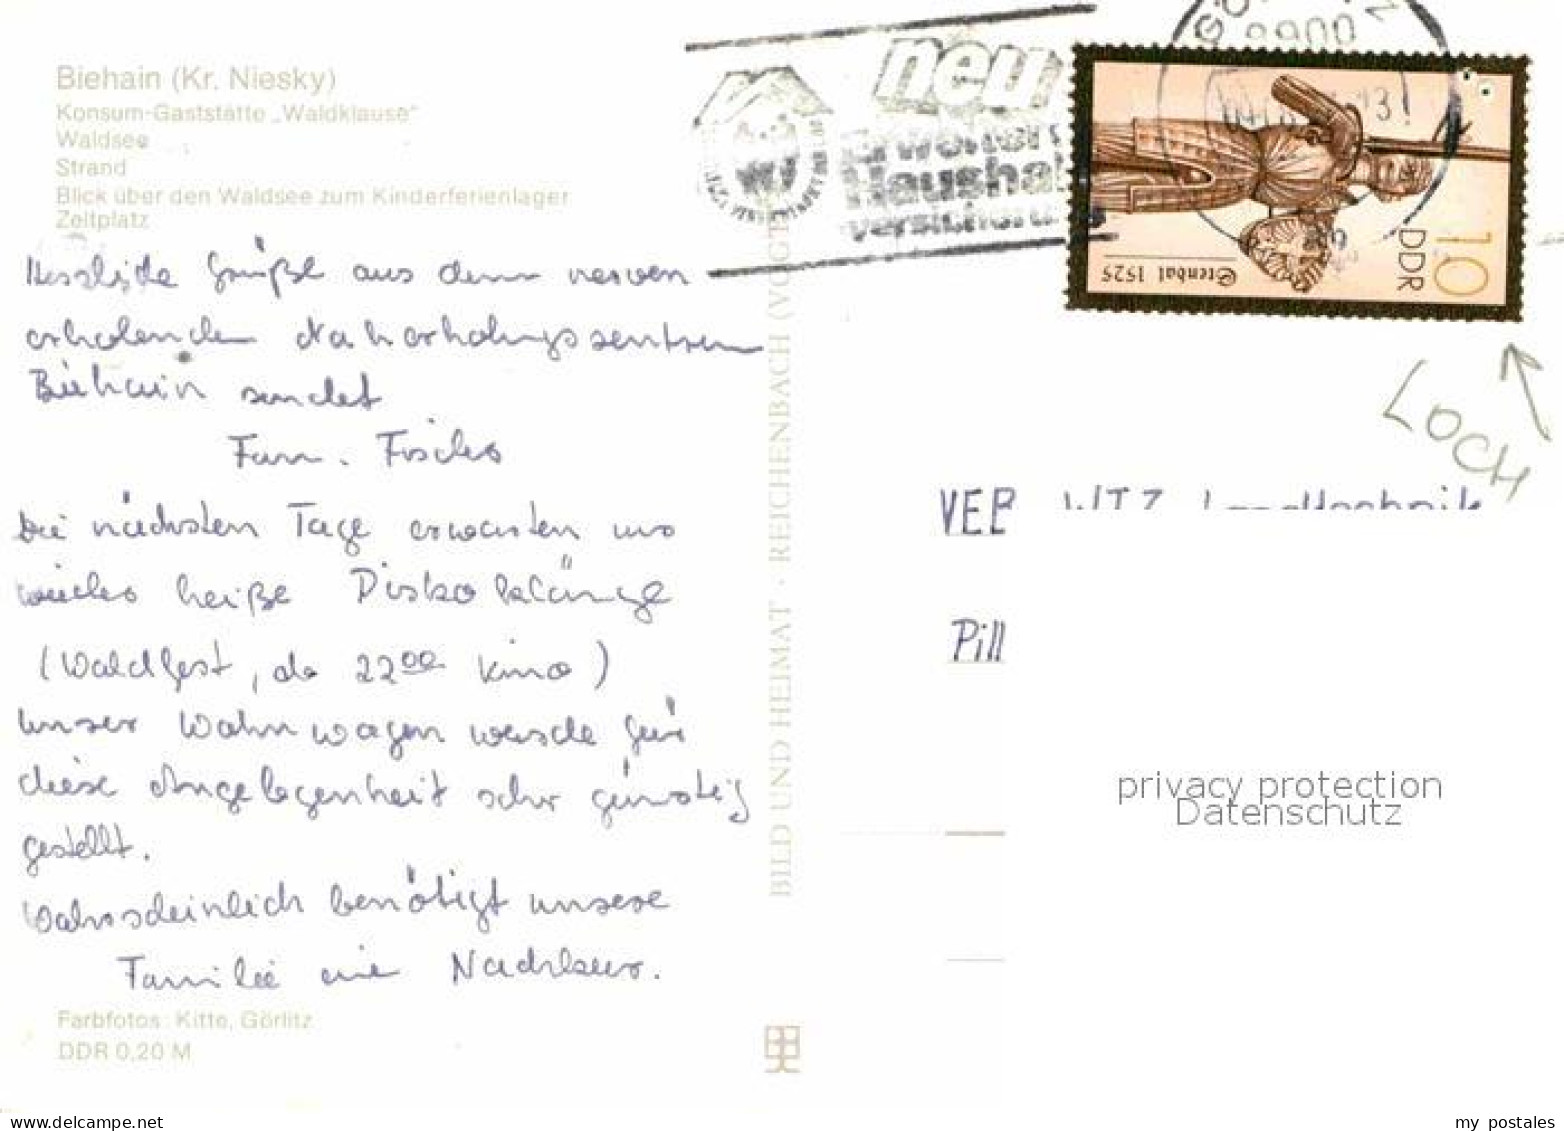 Biehain (Kr. Niesky)
Konsum-Gaststätte „Waldklause"
Waldsee
Strand
Blick über den Waldsee zum Kinderferienlager
Zeltplatz
Herzliche Grüße aus dem nerven
erholenden Naherholungszentrum
Biehain sendet
Fam. Fischer
Die nächsten Tage erwarten uns
wieder heiße Diskoklänge
(Waldfest, da 22⁰⁰ Kino)
Unser Wohnwagen wurde für
diese Angelegenheit sehr günstig
gestellt.
Wahrscheinlich benötigt unsere
Familie eine Nachkur.
Farbfotos: Kitte, Görlitz
DDR 0,20 M
BILD UND HEIMAT · REICHENBACH (VOGT
neu
Erweiterte
Haushalt
versicherung
8900
Stendal 1525
DDR
10
LOCH
VEB WTZ Landtechnik
Pill
privacy protection
Datenschutz
www.delcampe.net
my postales